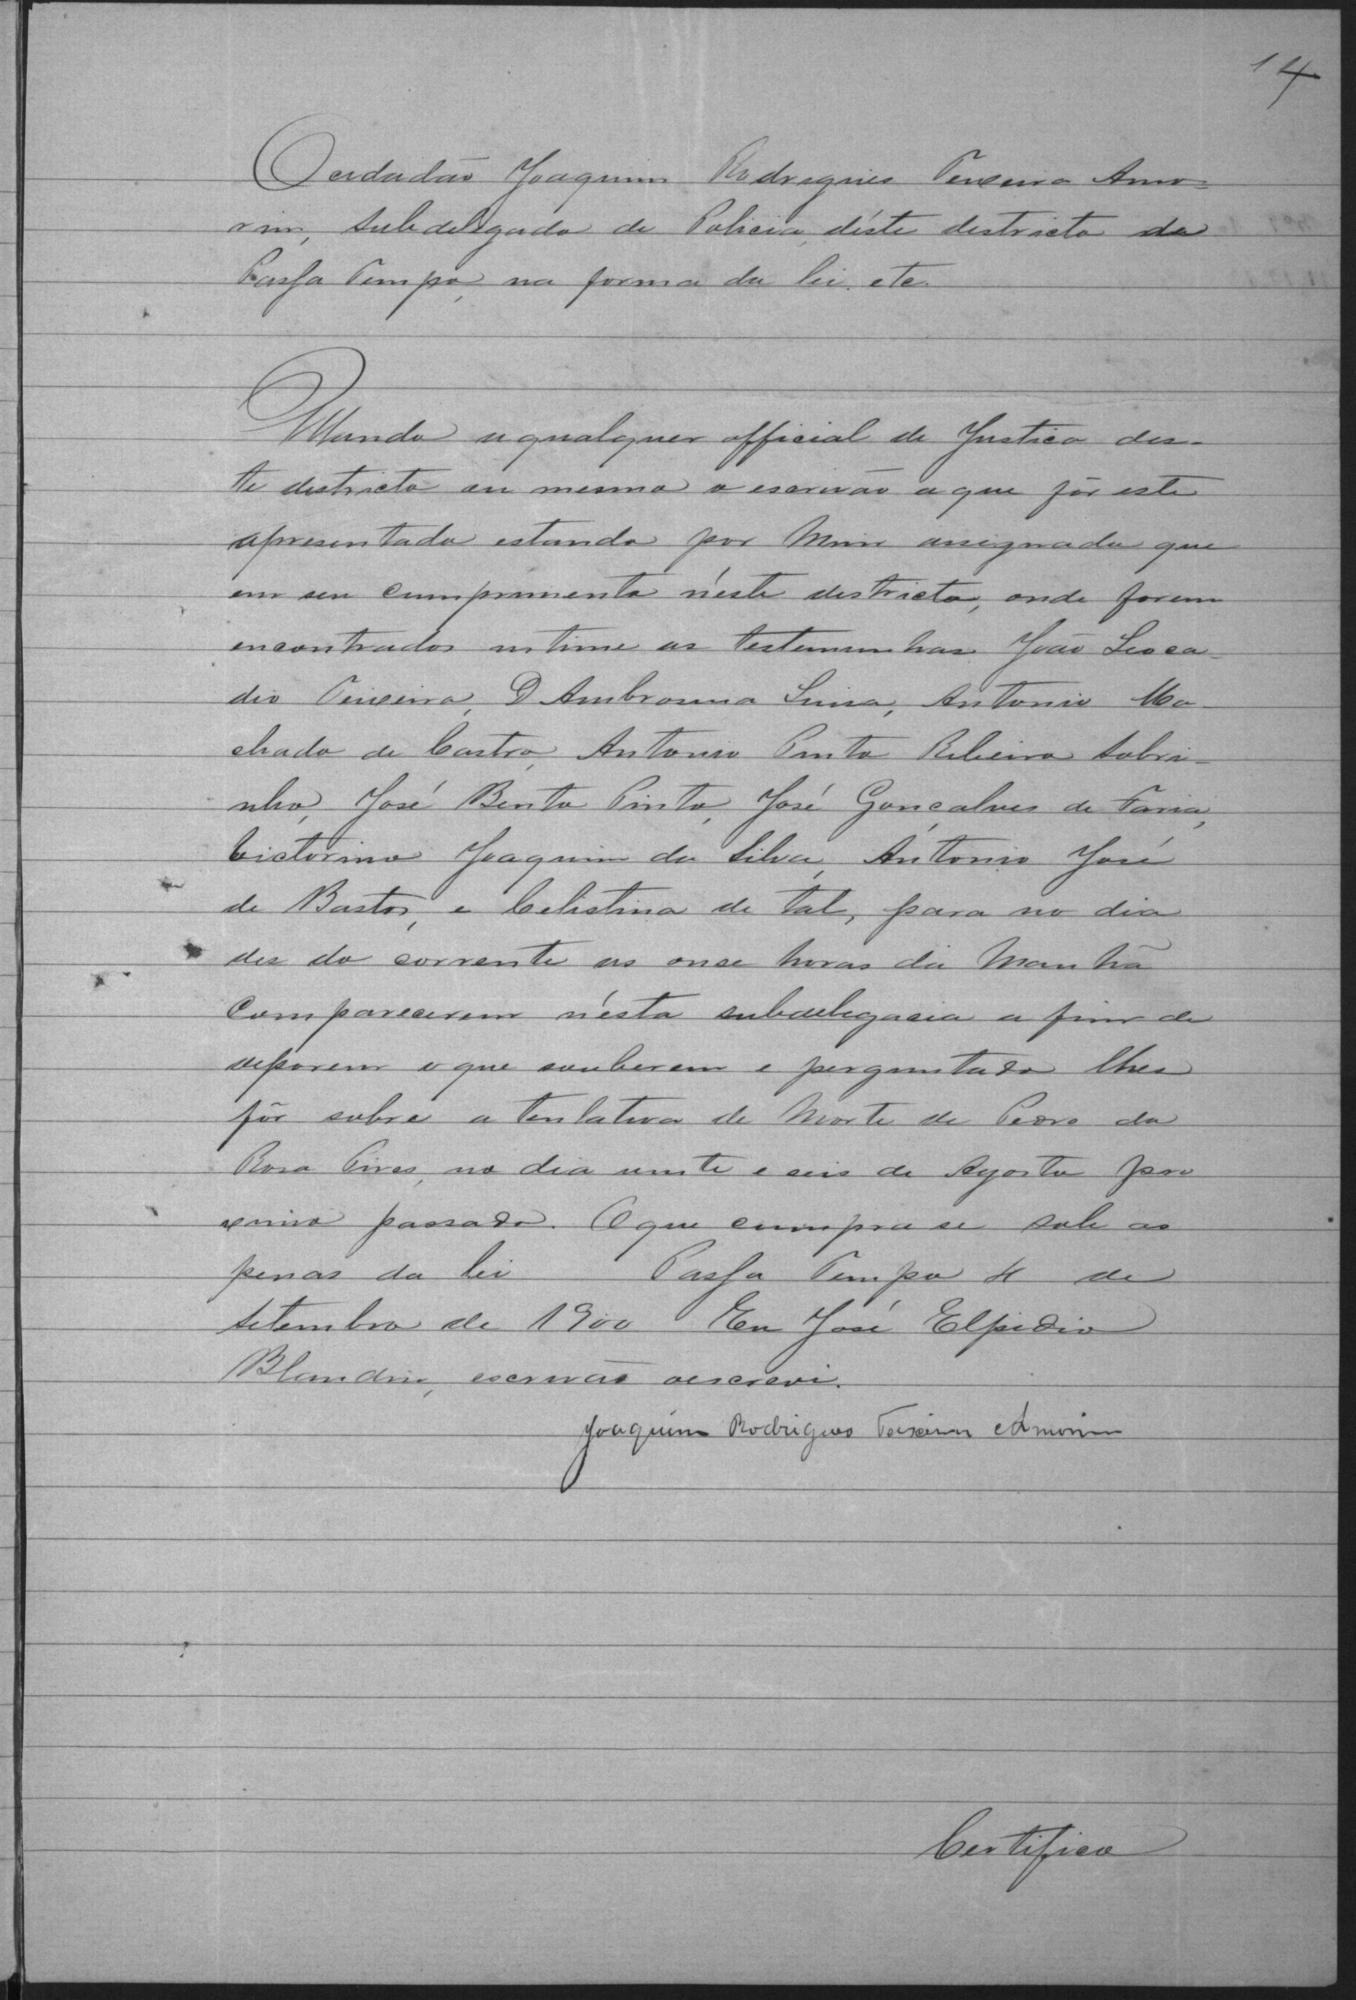 14
O cidadão Joaquim Rodrigues Teixeira Amo=
rim, subdelegado de Policia, déste destricto da
Passa Tempo, na forma da lei. etc.
Mando a qualquer official de Justica des-
te destricto ou mesmo o escrivão a que fôr este
apresentado estando por Mim assignado que
em seu cumprimento néste destricto, onde forem
encontrados intime as testemunhas João Leoca-
dio Teixeira, D Ambrosina Luiza, Antonio Ma-
chado de Castro, Antonio Pinto Ribeiro Sobri-
nho, José Bento Pinto, José Gonçalves de Faria,
Victorino Joaquim da Silva, Antonio José
de Bastos, e Celistina de tal, para no dia
des do corrente as onse horas da Manhã
Comparecerem nésta subdelegacia a fim de
deporem o que souberem e perguntado lhes
fôr sobre a tentativa de Morte de Pedro da
Rosa Pires, no dia vinte e seis de Agosto pro
ximo passado. O que cumpra se sob as
penas da lei Passa Tempo 4 de
Setembro de 1900 Eu José Elpidio
Blandim, escrivão o escrevi.
Joaquim Rodrigues Teixeira Amorim
Certifico